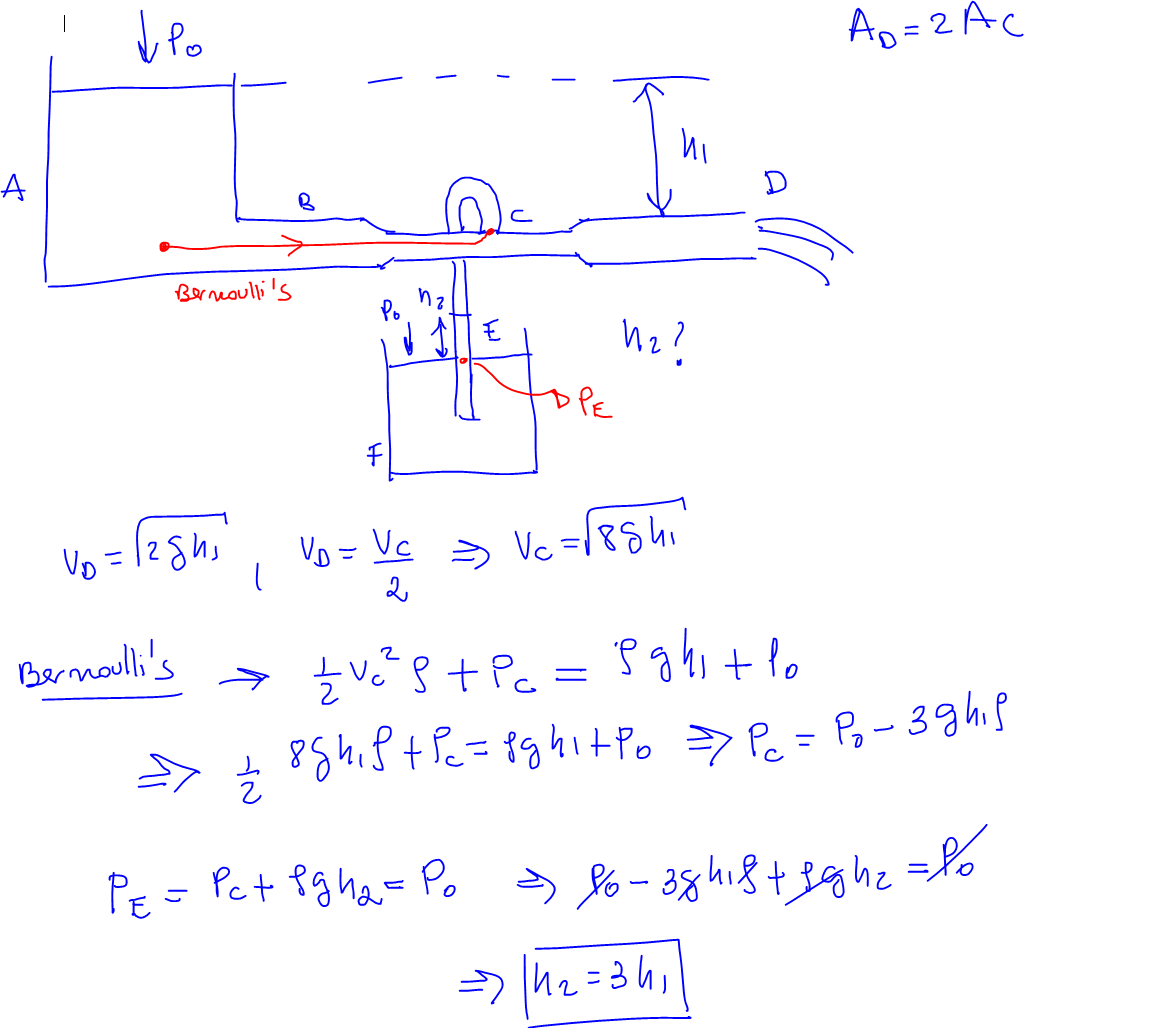 P₀
A_D = 2 A_C
h₁
A
B
C
D
Bernoulli's
P₀ h₂
E
h₂?
P_E
F
V_D = √2gh₁ , V_D = V_C/2 ⇒ V_C = √8gh₁
Bernoulli's → 1/2 V_C² ρ + P_C = ρgh₁ + P₀
⇒ 1/2 8gh₁ρ + P_C = ρgh₁ + P₀ ⇒ P_C = P₀ − 3gh₁ρ
P_E = P_C + ρgh₂ = P₀ ⇒ P₀ − 3gh₁ρ + ρgh₂ = P₀
⇒ h₂ = 3h₁